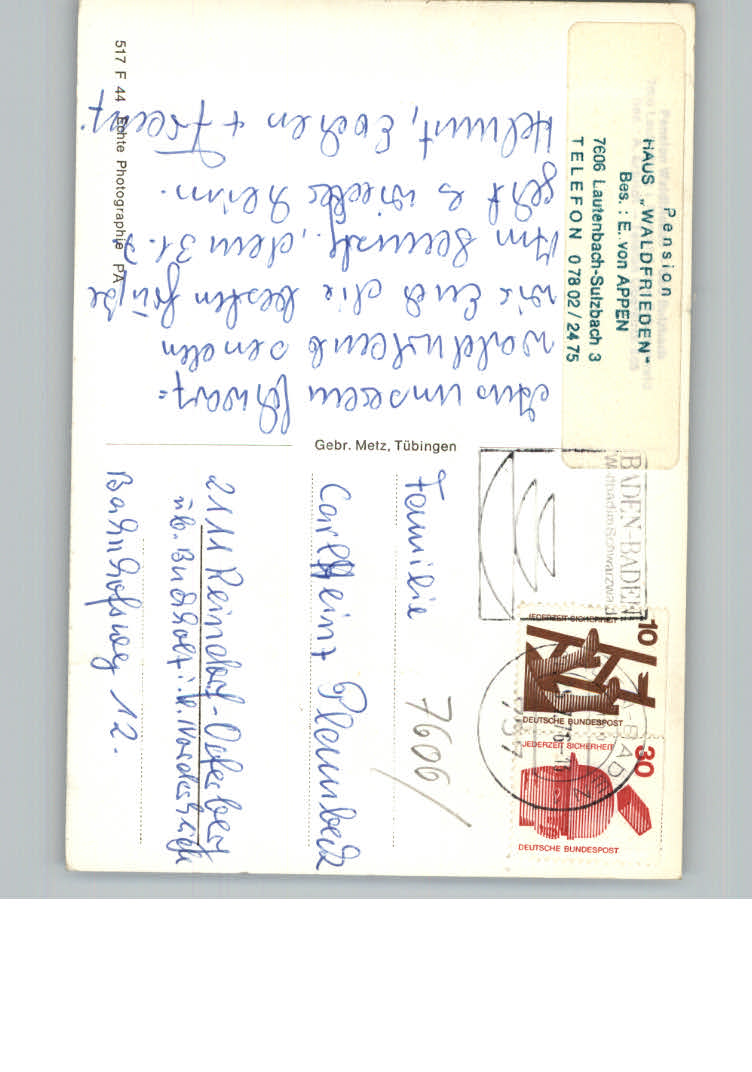 Pension
HAUS „WALDFRIEDEN"
Bes.: E. von APPEN
7606 Lautenbach-Sulzbach 3
TELEFON 07802/2475
Aus unserem Schwarz=
waldurlaub senden
wir Euch die besten Grüße
Am Sonnab., dem 31.7.
geht es wieder heim.
Helmut, +
517 F 44 Echte Photographie PA
Gebr. Metz, Tübingen
BADEN-BADEN
Weltbad im Schwarzwald
10
JEDERZEIT SICHERHEIT
DEUTSCHE BUNDESPOST
30
JEDERZEIT SICHERHEIT
DEUTSCHE BUNDESPOST
757
Familie
Carl Heinz Plambeck
7606/
2111 Reindorf-Osterberg
üb. Buchholz i. d. Nordheide
Bahnhofsweg 12.